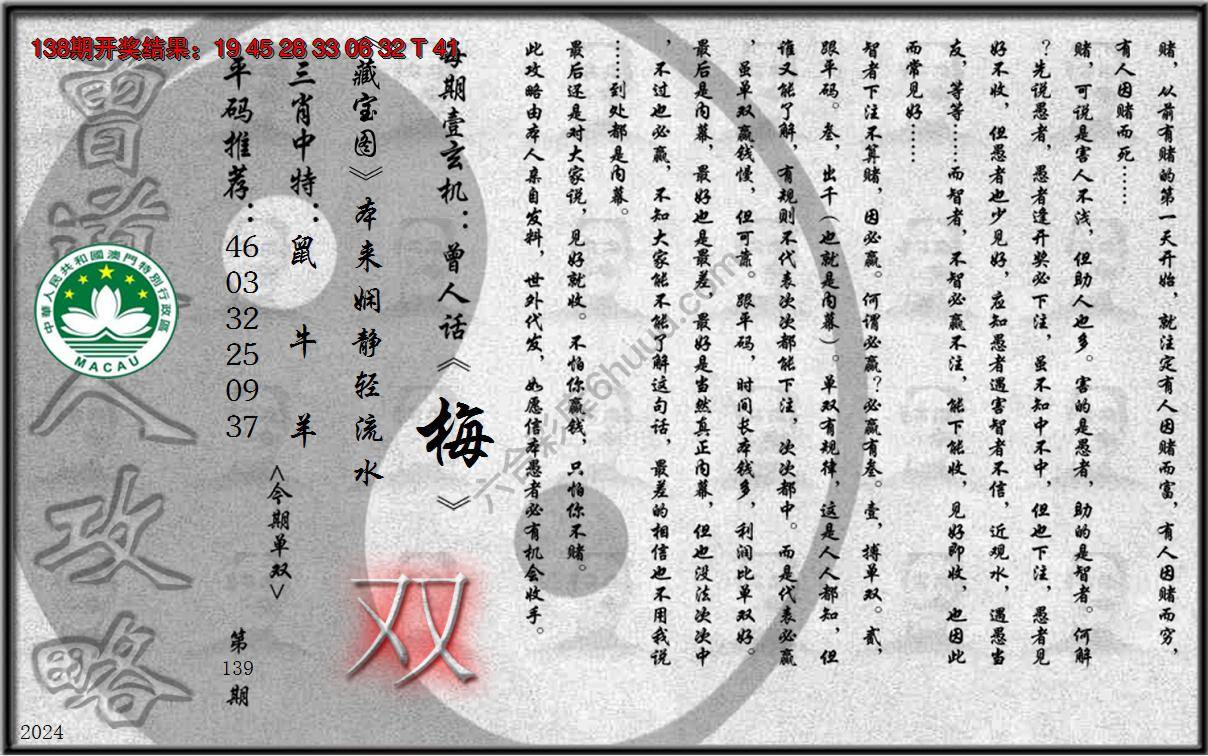 138期开奖结果：19 45 28 33 06 32 T 41
赌，从前有赌的第一天开始，就注定有人因赌而富，有人因赌而穷，
有人因赌而死……
赌，可说是害人不浅，但助人也多。害的是愚者，助的是智者。何解
？先说愚者，愚者逢开奖必下注，虽不知中不中，但也下注，愚者见
好不收，但愚者也少见好，应知愚者遇害智者不信，近观水，遇愚当
友，等等……而智者，不智必赢不注，能下能收，见好即收，也因此
而常见好……
智者下注不算赌，因必赢。何谓必赢？必赢有叁。壹，搏单双。贰，
跟平码。叁，出千（也就是内幕）。单双有规律，这是人人都知，但
谁又能了解，有规则不代表次次都能下注，次次都中。而是代表必赢
，虽单双赢钱慢，但可靠。跟平码，时间长本钱多，利润比单双好。
最后是内幕，最好也是最差，最好是当然真正内幕，但也没法次次中
，不过也必赢，不知大家能不能了解这句话，最差的相信也不用我说
……到处都是内幕。
最后还是对大家说，见好就收。不怕你赢钱，只怕你不赌。
此攻略由本人亲自发料，世外代发，如愿信本愚者必有机会收手。
每期壹玄机：曾人话《梅》
《藏宝图》本来娴静轻流水
双
三肖中特：鼠 牛 羊
<今期单双>
平码推荐：
46
03
32
25
09
37
第
139
期
曾道人攻略
中華人民共和國澳門特別行政區
MACAU
2024